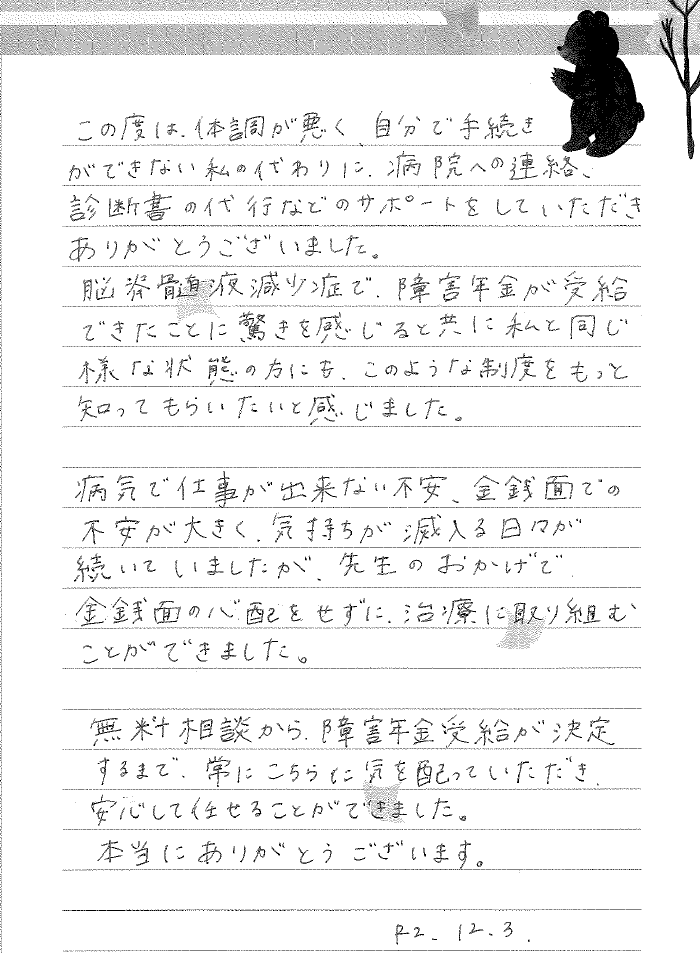 この度は、体調が悪く、自分で手続き
ができない私の代わりに、病院への連絡、
診断書の代行などのサポートをしていただき
ありがとうございました。
脳脊髄液減少症で、障害年金が受給
できたことに驚きを感じると共に私と同じ
様な状態の方にも、このような制度をもっと
知ってもらいたいと感じました。
病気で仕事が出来ない不安、金銭面での
不安が大きく、気持ちが滅入る日々が
続いていましたが、先生のおかげで
金銭面の心配をせずに、治療に取り組む
ことができました。
無料相談から、障害年金受給が決定
するまで、常にこちらに気を配っていただき、
安心して任せることができました。
本当にありがとうございます。
R2.12.3.